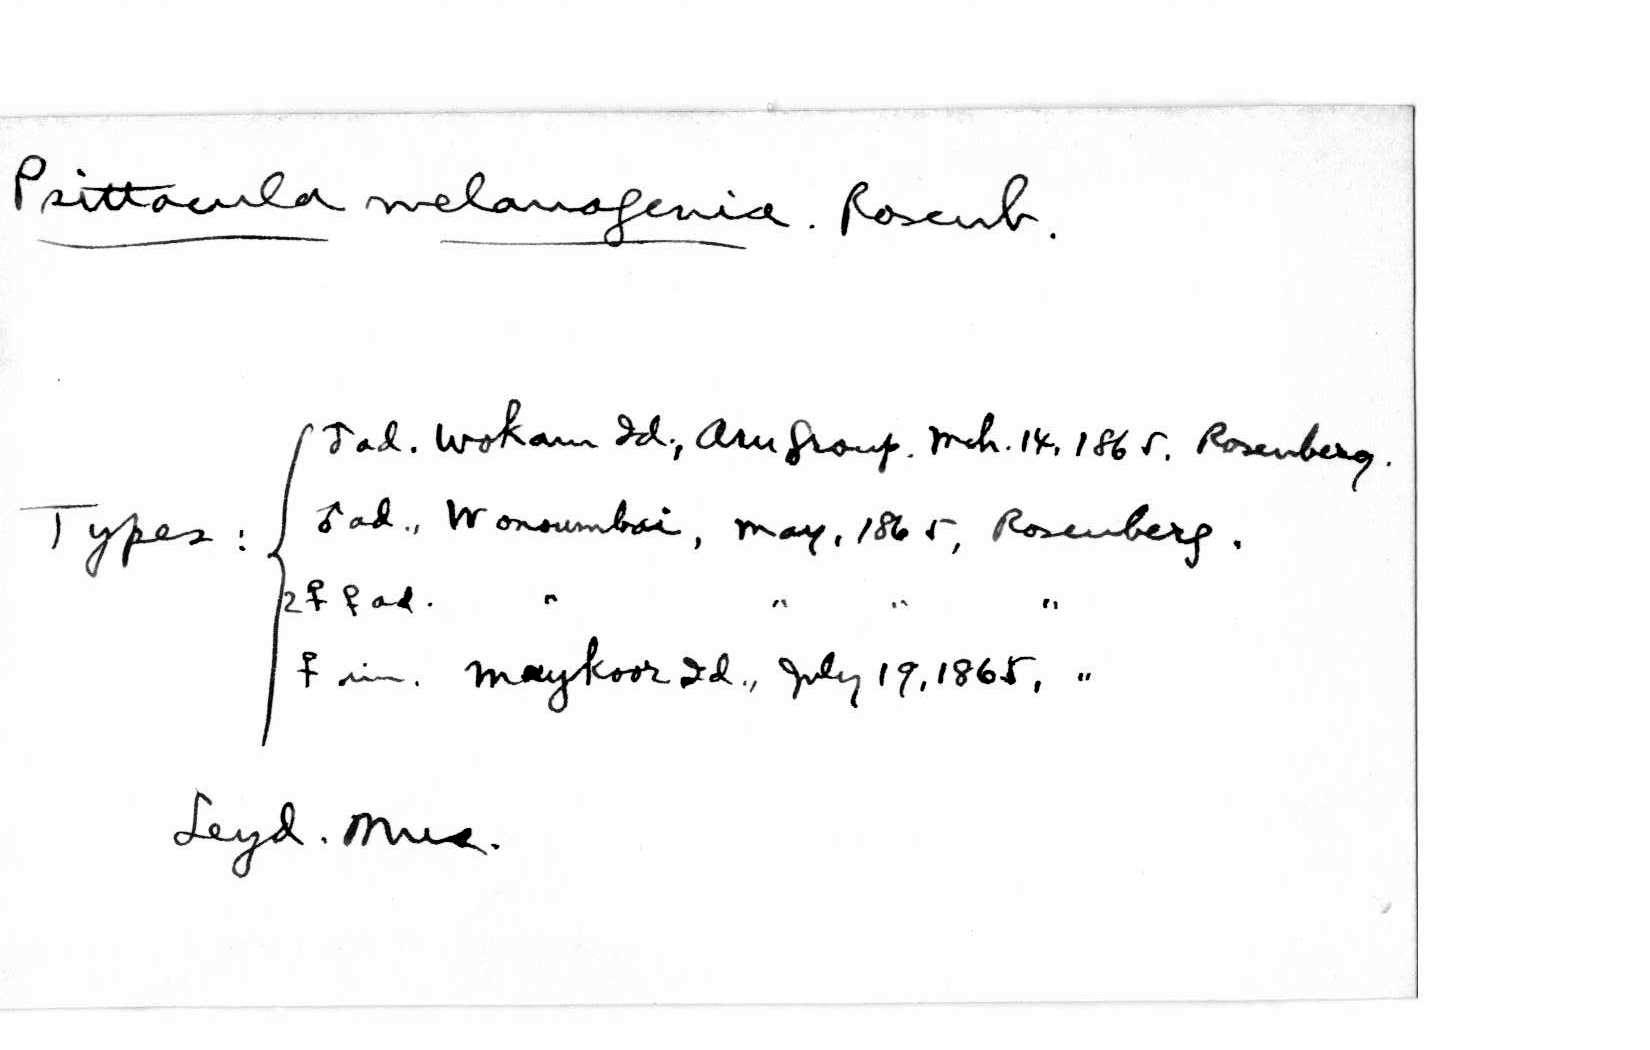 Psittacula melanogenia. Rosenb.
Types:
♂ ad. Wokam Id., Aru Group. Mch. 14, 1865. Rosenberg.
♂ ad., Wonoumbai, May, 1865, Rosenberg.
2 ♀♀ ad. " " " "
♀ im. Maykoor Id., July 19, 1865, "
Leyd. Mus.